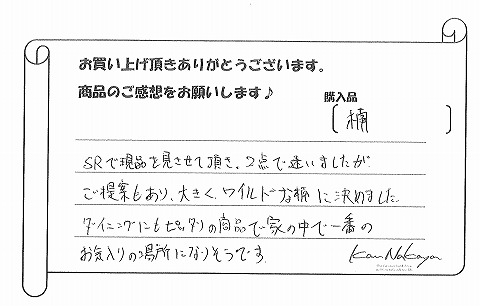 お買い上げ頂きありがとうございます。
商品のご感想をお願いします♪
購入品
[ 楠 ]
SRで現品を見させて頂き、2点で迷いましたが
ご提案もあり、大きく、ワイルドな楠に決めました
ダイニングにもピッタリの商品で家の中で一番の
お気入りの場所になりそうです。